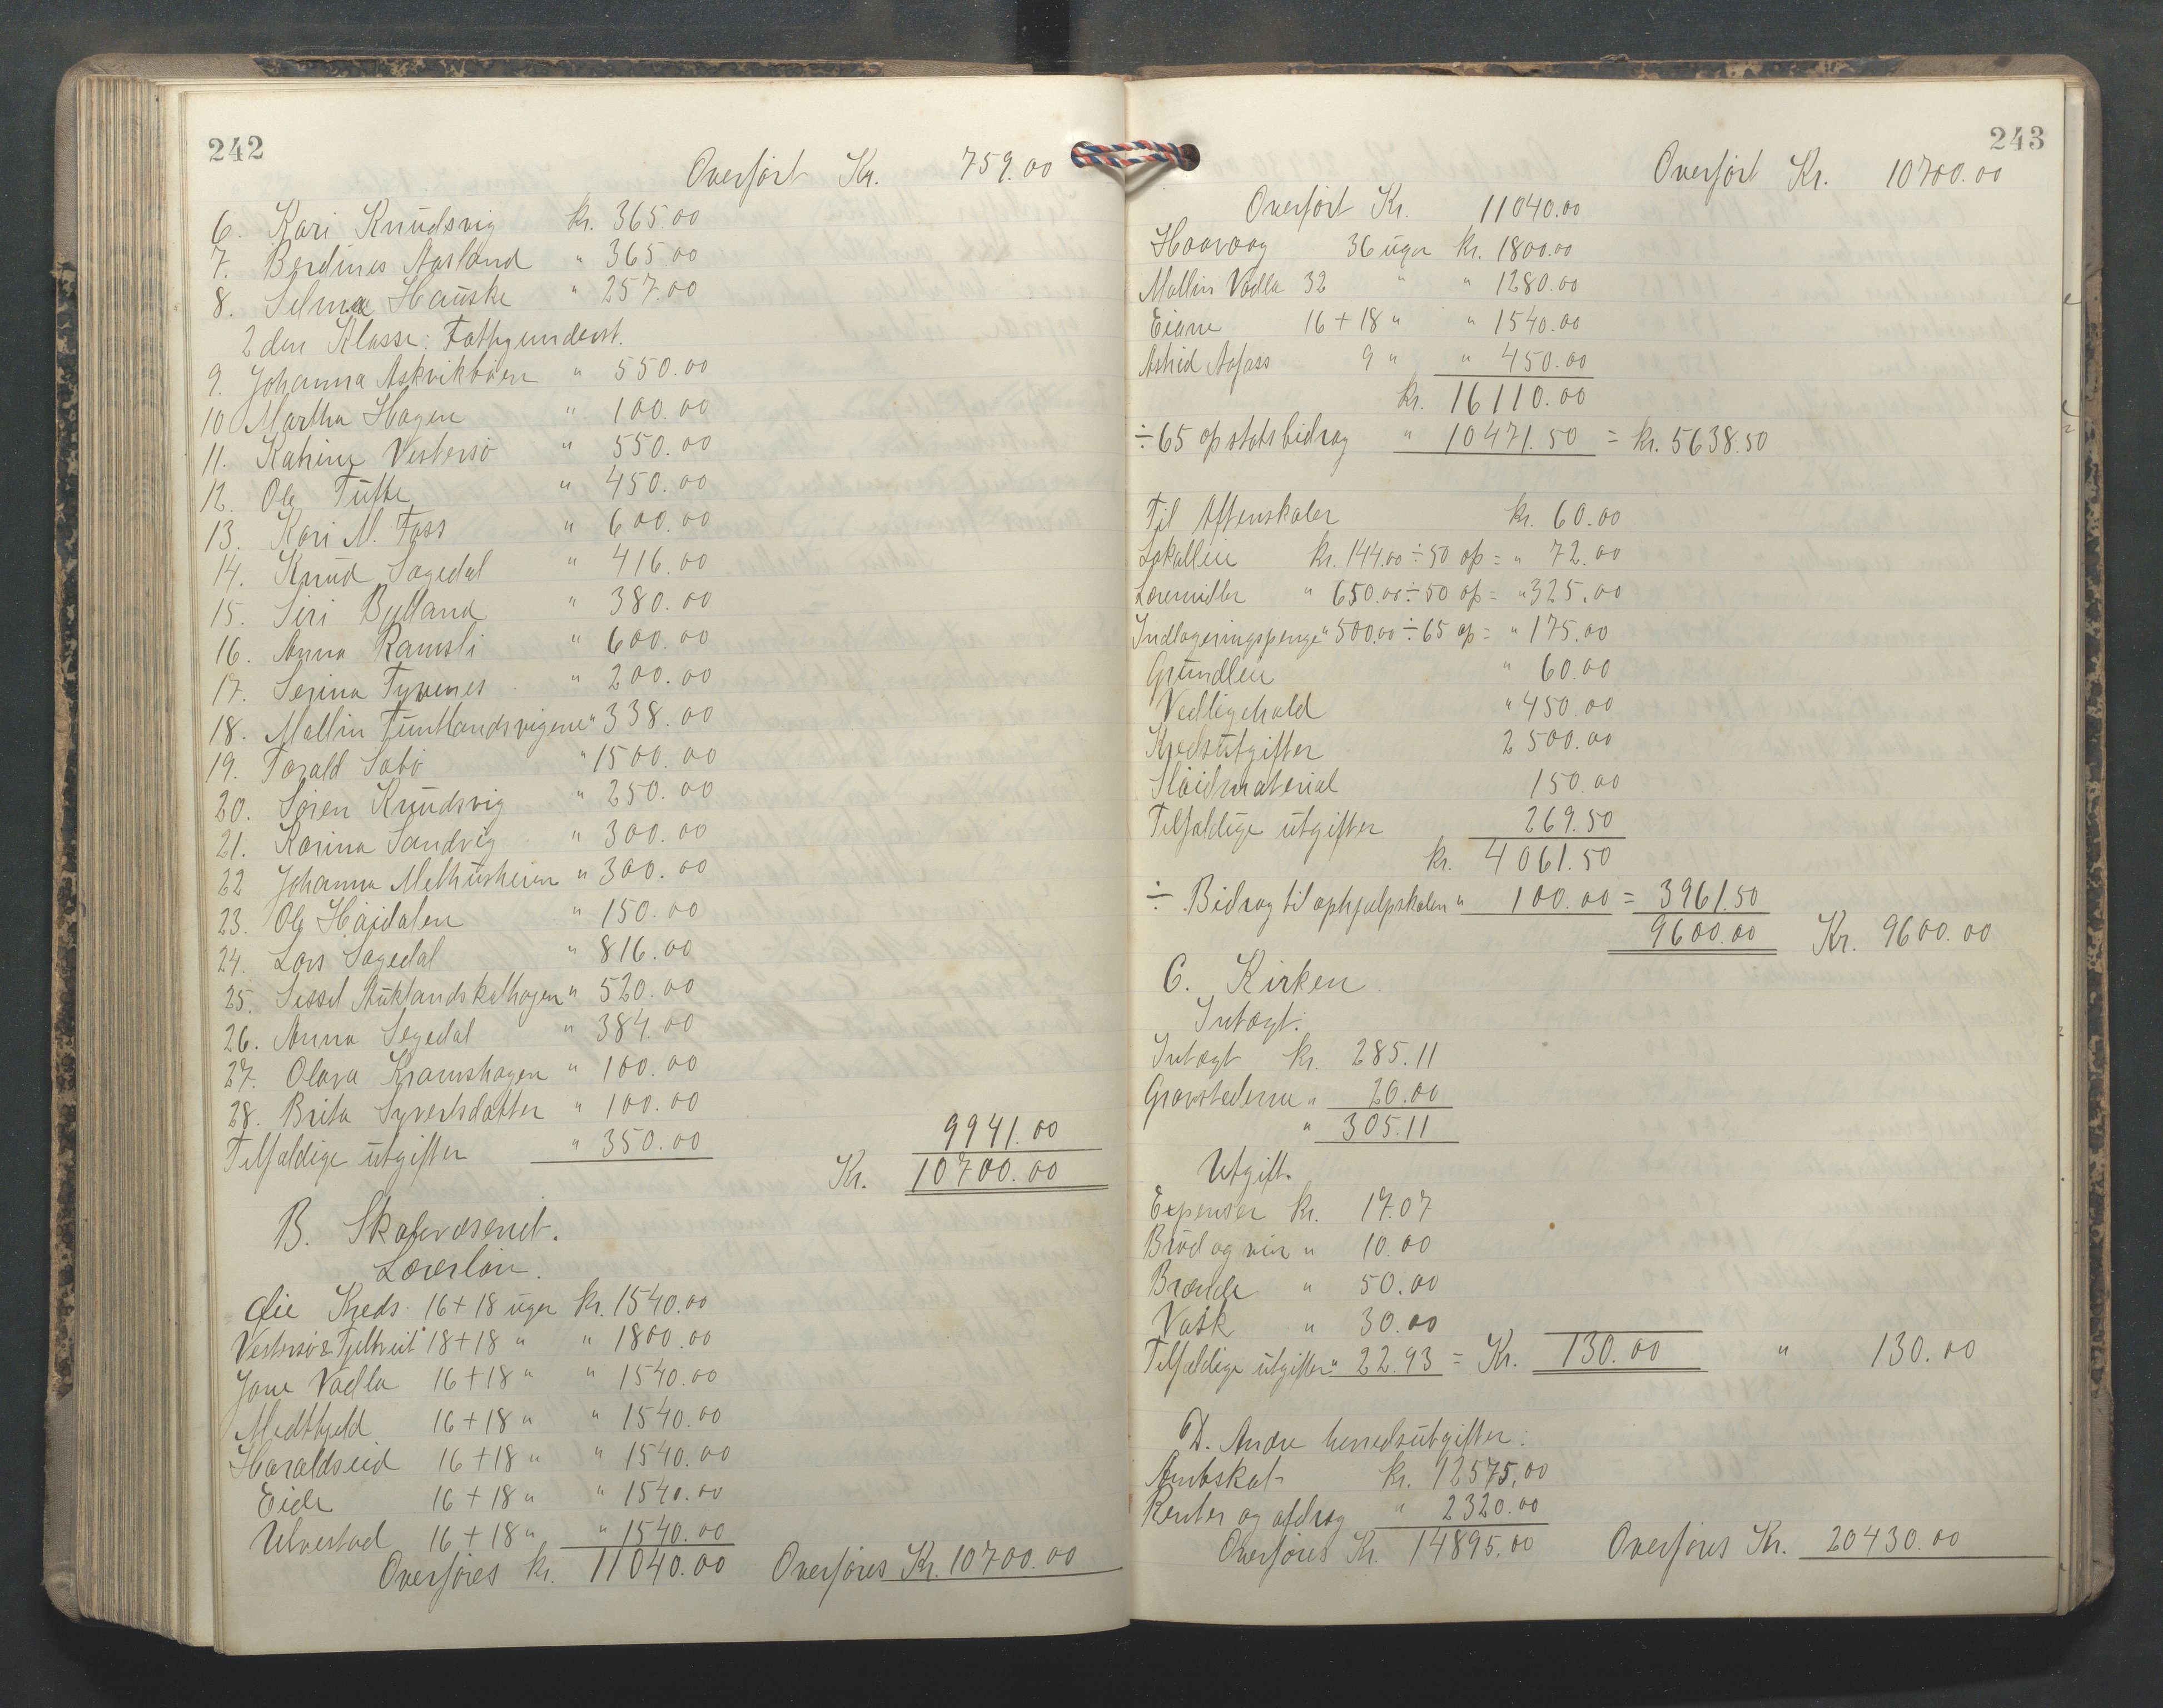 242
Overført Kr. 759.00
6. Kari Knudsvig kr. 365.00
7. Berdines Aasland " 365.00
8. Selma Hauske " 257.00
2den Klasse: Fattigunderst.
9. Johanna Askvikbøen " 550.00
10 Martha Hagen " 100.00
11. Katrine Vestersø " 550.00
12. Ole Tufte " 450.00
13. Kari M. Foss " 600.00
14. Knud Sagedal " 416.00
15. Siri Bjelland " 380.00
16. Anna Ramsli " 600.00
17. Serina Tyvenes " 200.00
18. Mallin Tuntlandsvigene " 338.00
19. Torald Sabø " 1500.00
20. Søren Knudsvig " 250.00
21. Karina Sandvig " 300.00
22 Johanna Melhusheien " 300.00
23. Ole Høidalen " 150.00
24. Lars Sagedal " 816.00
25. Sissel Stuklandskilhagen " 520.00
26. Anna Segedal " 384.00
27. Olava Kramshagen " 100.00
28. Brita Syvertsdatter " 100.00
Tilfældige utgifter " 350.00 9941.00
Kr. 10700.00
B. Skolevæsenet.
Lærerløn.
Øie Kreds 16+18 uger kr. 1540.00
Vestersø & Fjelbreit 18+18 " " 1800.00
Jone Vadla 16+18 " " 1540.00
Midthjeld 16+18 " " 1540.00
Haraldseid 16+18 " " 1540.00
Eide 16+18 " " 1540.00
Ulvestad 16+18 " " 1540.00
Overføres kr. 11040.00 Overføres Kr. 10700.00
243
Overført Kr. 10700.00
Overført Kr. 11040.00
Haavaag 36 uger kr. 1800.00
Mallin Vadla 32 " " 1280.00
Eiane 16+18 " " 1540.00
Astrid Aafoss 9 " " 450.00
kr. 16110.00
÷ 65 op statsbidrag " 10471.50 = kr. 5638.50
Til Aftenskoler kr. 60.00
Lokalleie kr. 144.00 ÷ 50 op = " 72.00
Læremidler " 650.00 ÷ 50 op = " 325.00
Indlogeringspenge " 500.00 ÷ 65 op = " 175.00
Grundleie " 60.00
Vedligehold " 450.00
Kredsutgifter 2500.00
Sløidmaterial 150.00
Tilfældige utgifter 269.50
kr. 4061.50
÷ Bidrag til ophjælpskolen " 100.00 = 3961.50
9600.00 Kr. 9600.00
C. Kirken.
Intægt:
Intægt kr. 285.11
Gravstederne " 20.00
" 305.11
Utgift.
Expenser kr. 17.07
Brød og vin " 10.00
Brænde " 50.00
Vask " 30.00
Tilfældige utgifter " 22.93 = Kr. 130.00 " 130.00
D. Andre herredsutgifter:
Amtskat kr. 12575.00
Renter og afdrag " 2320.00
Overføres Kr. 14895.00 Overføres Kr. 20430.00